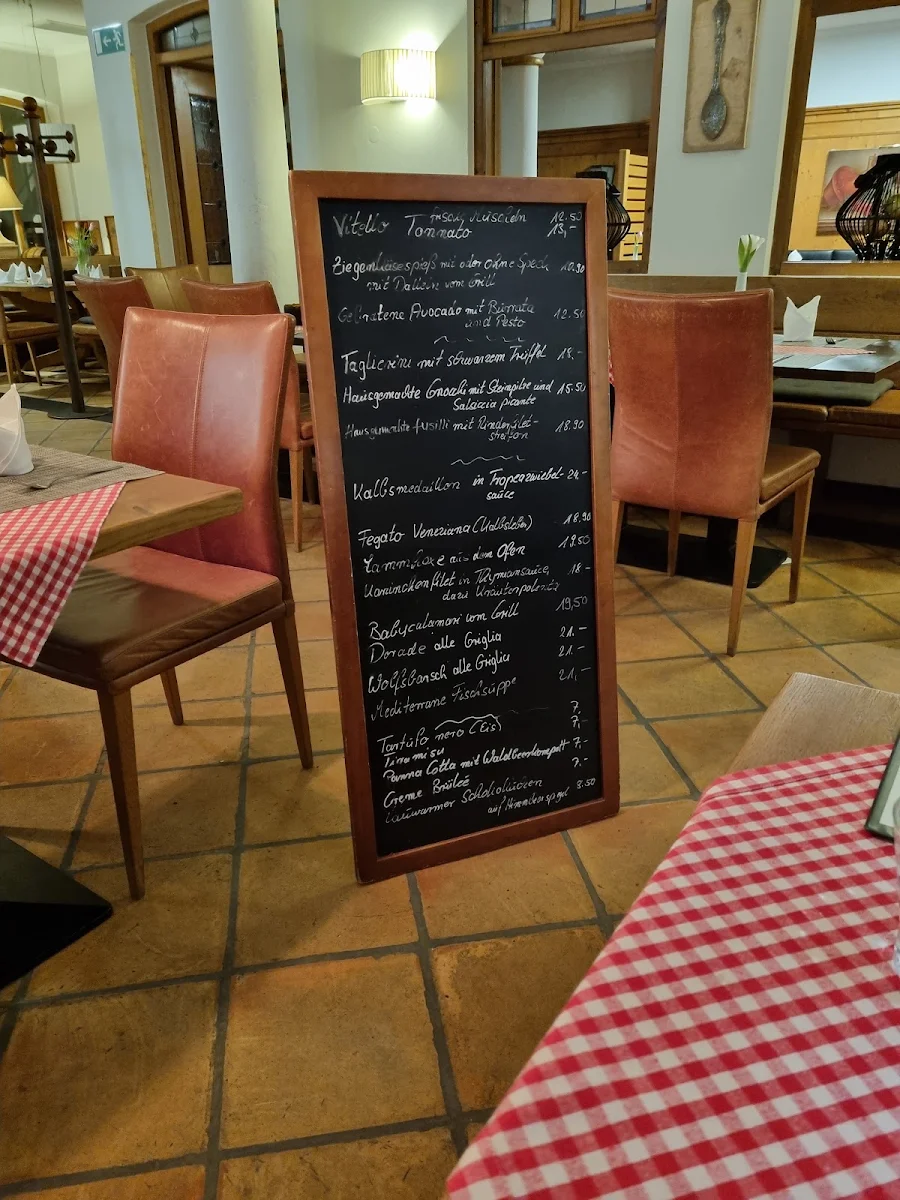 frische Muscheln 12.50
Vitello Tonnato 13,-
Ziegenkäsespieß mit oder ohne Speck 10.90
mit Datteln vom Grill
Gebratene Avocado mit Burrata 12.50
und Pesto
Taglierini mit schwarzem Trüffel 18.-
Hausgemachte Gnochi mit Steinpilze und 15.50
Salsiccia picante
Hausgemachte fusilli mit Rinderfilet- 18.90
streifen
Kalbsmedaillon in Tropeazwiebel- 24.-
sauce
Fegato Veneziana (Kalbsleber) 18.90
Lammhaxe aus dem Ofen 19.50
Kaninchenfilet in Thymiansauce, 18.-
dazu Kräuterpolenta
Babycalamari vom Grill 19,50
Dorade alle Griglia 21.-
Wolfsbarsch alle Griglia 21.-
Mediterrane Fischsuppe 21,-
Tartufo nero (Eis) 7.
Tiramisu 7,-
Panna Cotta mit Waldbeerkompott 7.-
Creme Brüleé 7.-
Lauwarmer Schokokuchen 8.50
auf Himbeerspiegel